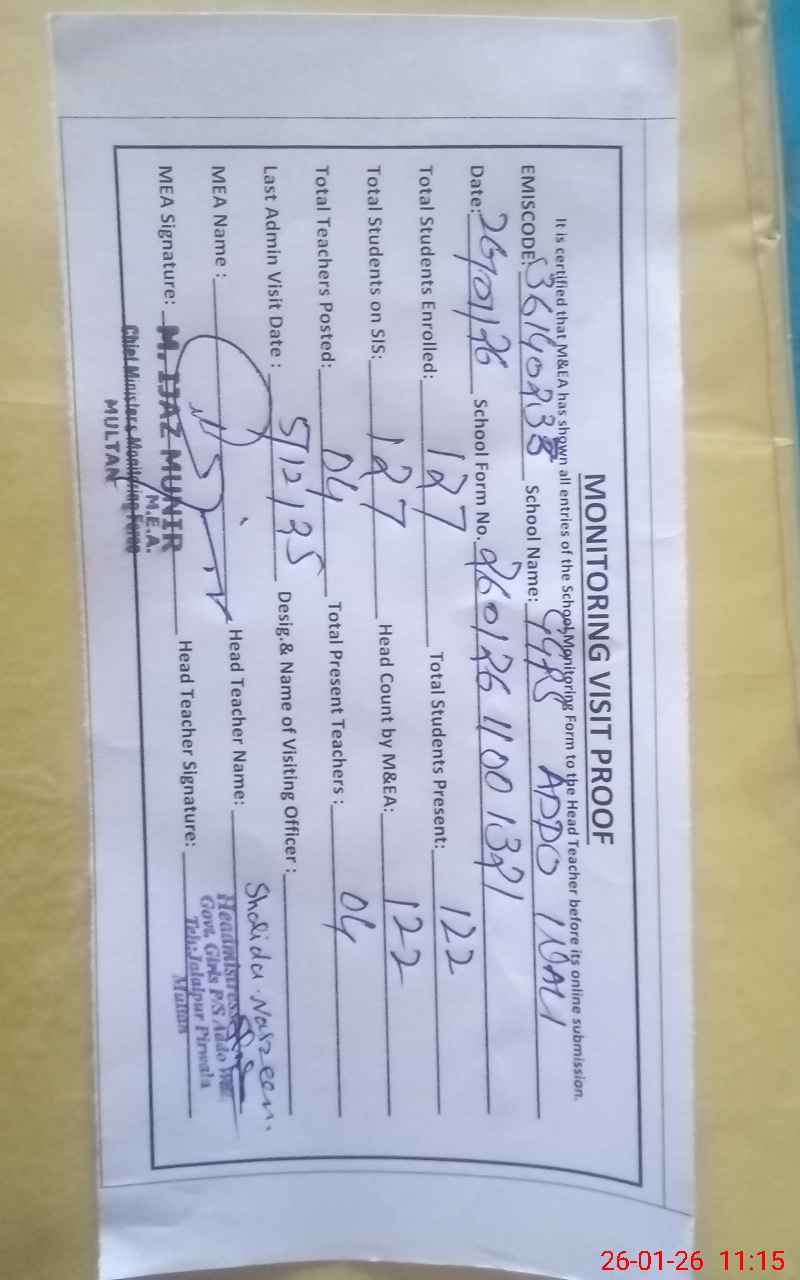 MONITORING VISIT PROOF
It is certified that M&EA has shown all entries of the School Monitoring Form to the Head Teacher before its online submission.
EMISCODE: 36140238 School Name: GGPS ADDO WALI
Date: 26/01/26 School Form No. 26012611001321
Total Students Enrolled: 127 Total Students Present: 122
Total Students on SIS: 127 Head Count by M&EA: 122
Total Teachers Posted: 04 Total Present Teachers : 04
Last Admin Visit Date : 5/12/25 Desig.& Name of Visiting Officer :
MEA Name : Head Teacher Name: Shahida Nasreen.
MEA Signature: Head Teacher Signature:
M. IJAZ MUNIR
M.E.A.
Chief Ministers Monitoring Force
MULTAN
Headmistress
Govt. Girls P/S Addo Wali
Teh:Jalalpur Pirwala
Multan
26-01-26 11:15